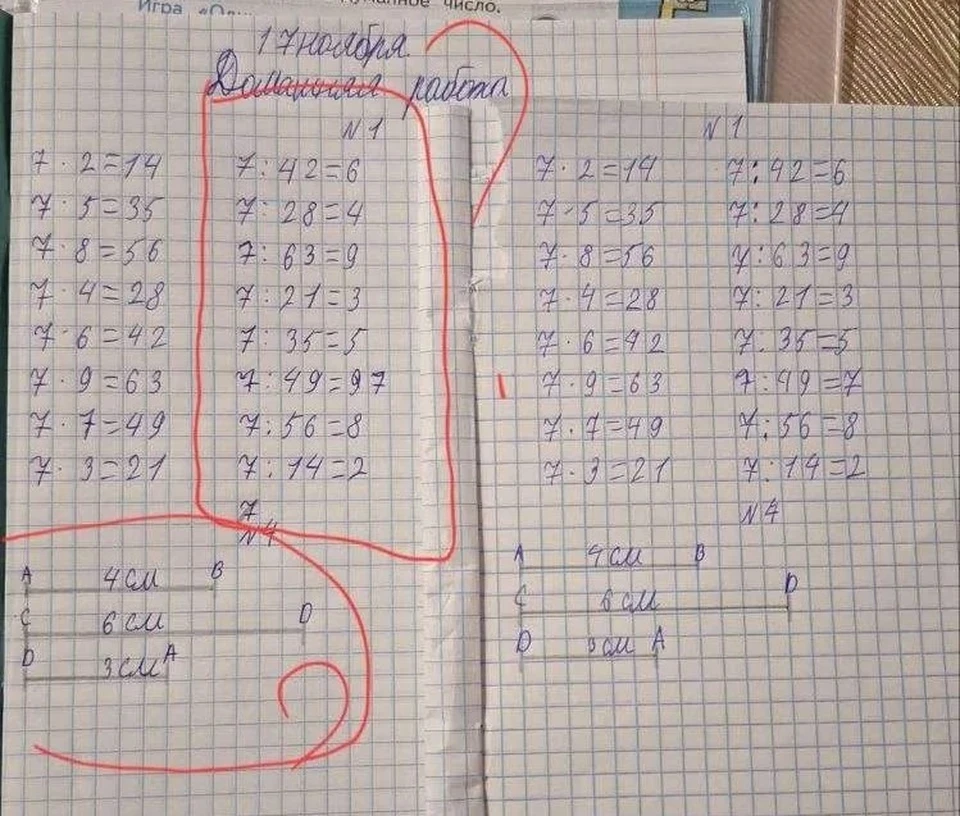 Игра
число.
17 ноября.
Домашняя работа
N 1
7 · 2 = 14 7 : 42 = 6
7 · 5 = 35 7 : 28 = 4
7 · 8 = 56 7 : 63 = 9
7 · 4 = 28 7 : 21 = 3
7 · 6 = 42 7 : 35 = 5
7 · 9 = 63 7 : 49 = 97
7 · 7 = 49 7 : 56 = 8
7 · 3 = 21 7 : 14 = 2
7
N 4
A 4 см B
C 6 см D
D 3 см A
N 1
7 · 2 = 14 7 : 42 = 6
7 · 5 = 35 7 : 28 = 4
7 · 8 = 56 7 : 63 = 9
7 · 4 = 28 7 : 21 = 3
7 · 6 = 42 7 : 35 = 5
7 · 9 = 63 7 : 49 = 7
7 · 7 = 49 7 : 56 = 8
7 · 3 = 21 7 : 14 = 2
N 4
A 4 см B
C 6 см D
D 3 см A